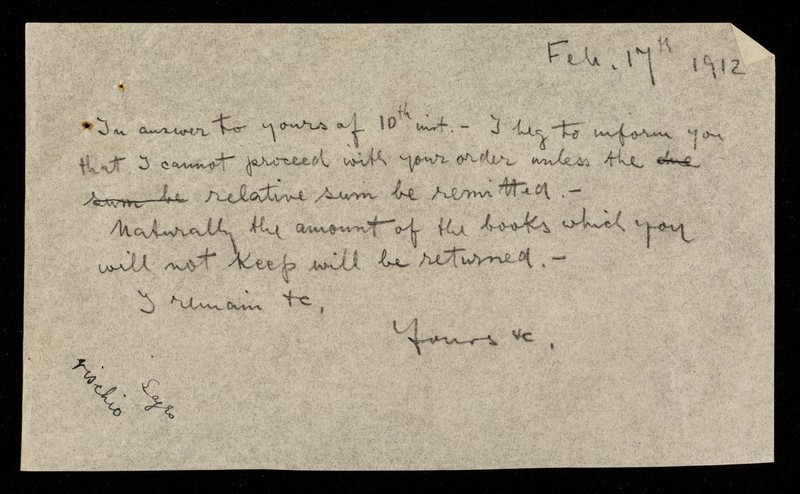 Feb. 17th 1912
In answer to yours of 10th inst. - I beg to inform you
that I cannot proceed with your order unless the due
sum be relative sum be remitted. -
Naturally the amount of the books which you
will not keep will be returned. -
I remain &c,
Yours &c,
rischio